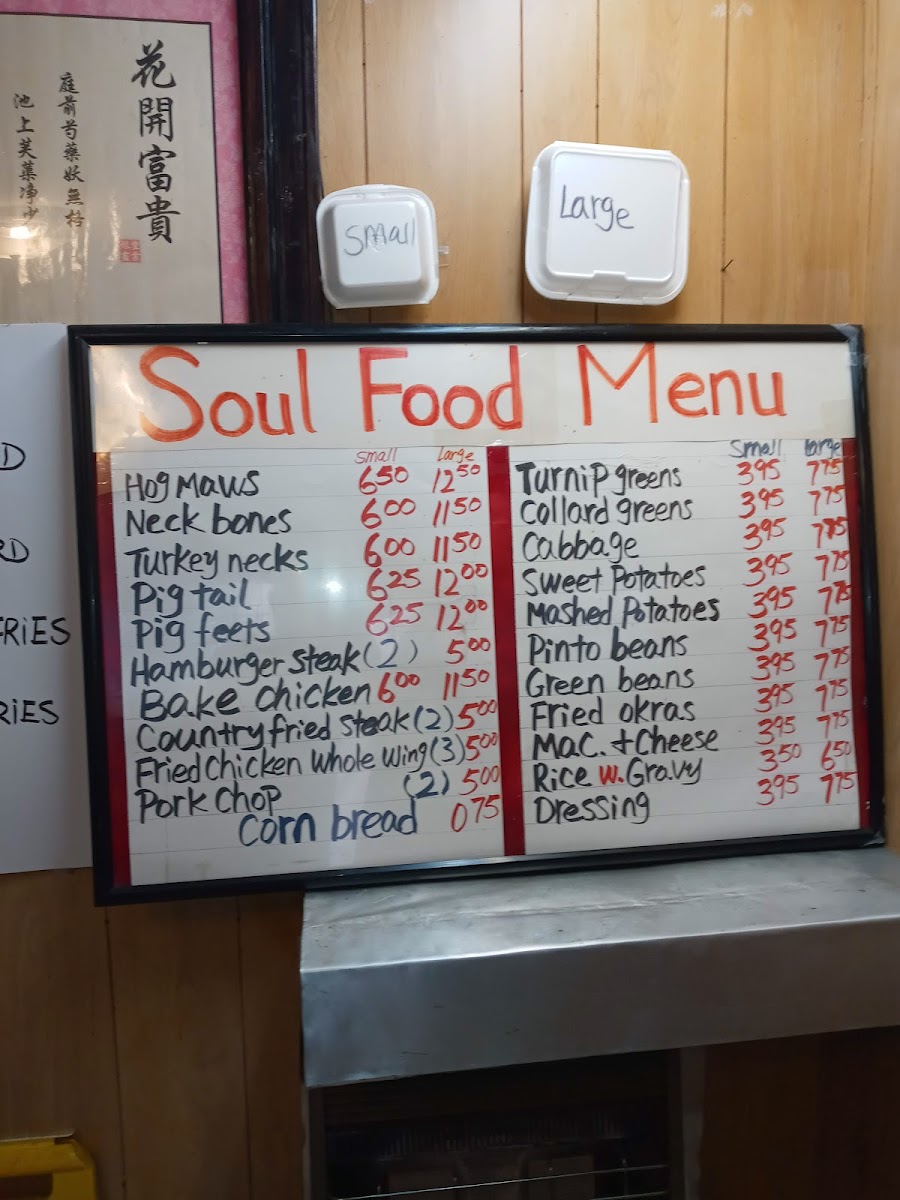 花開富貴
庭前芍藥妖無格
池上芙蕖凈少
Small
Large
Soul Food Menu
small large
Hog Maws 6.50 12.50
Neck bones 6.00 11.50
Turkey necks 6.00 11.50
Pig tail 6.25 12.00
Pig feets 6.25 12.00
Hamburger Steak (2) 5.00
Bake Chicken 6.00 11.50
Country fried Steak (2) 5.00
Fried Chicken Whole Wing (3) 5.00
Pork Chop (2) 5.00
Corn bread 0.75
Small Large
Turnip greens 3.95 7.75
Collard greens 3.95 7.75
Cabbage 3.95 7.75
Sweet Potatoes 3.95 7.75
Mashed Potatoes 3.95 7.75
Pinto beans 3.95 7.75
Green beans 3.95 7.75
Fried okras 3.95 7.75
Mac. + Cheese 3.95 7.75
Rice w. Gravy 3.50 6.50
Dressing 3.95 7.75
D
RD
FRIES
RIES